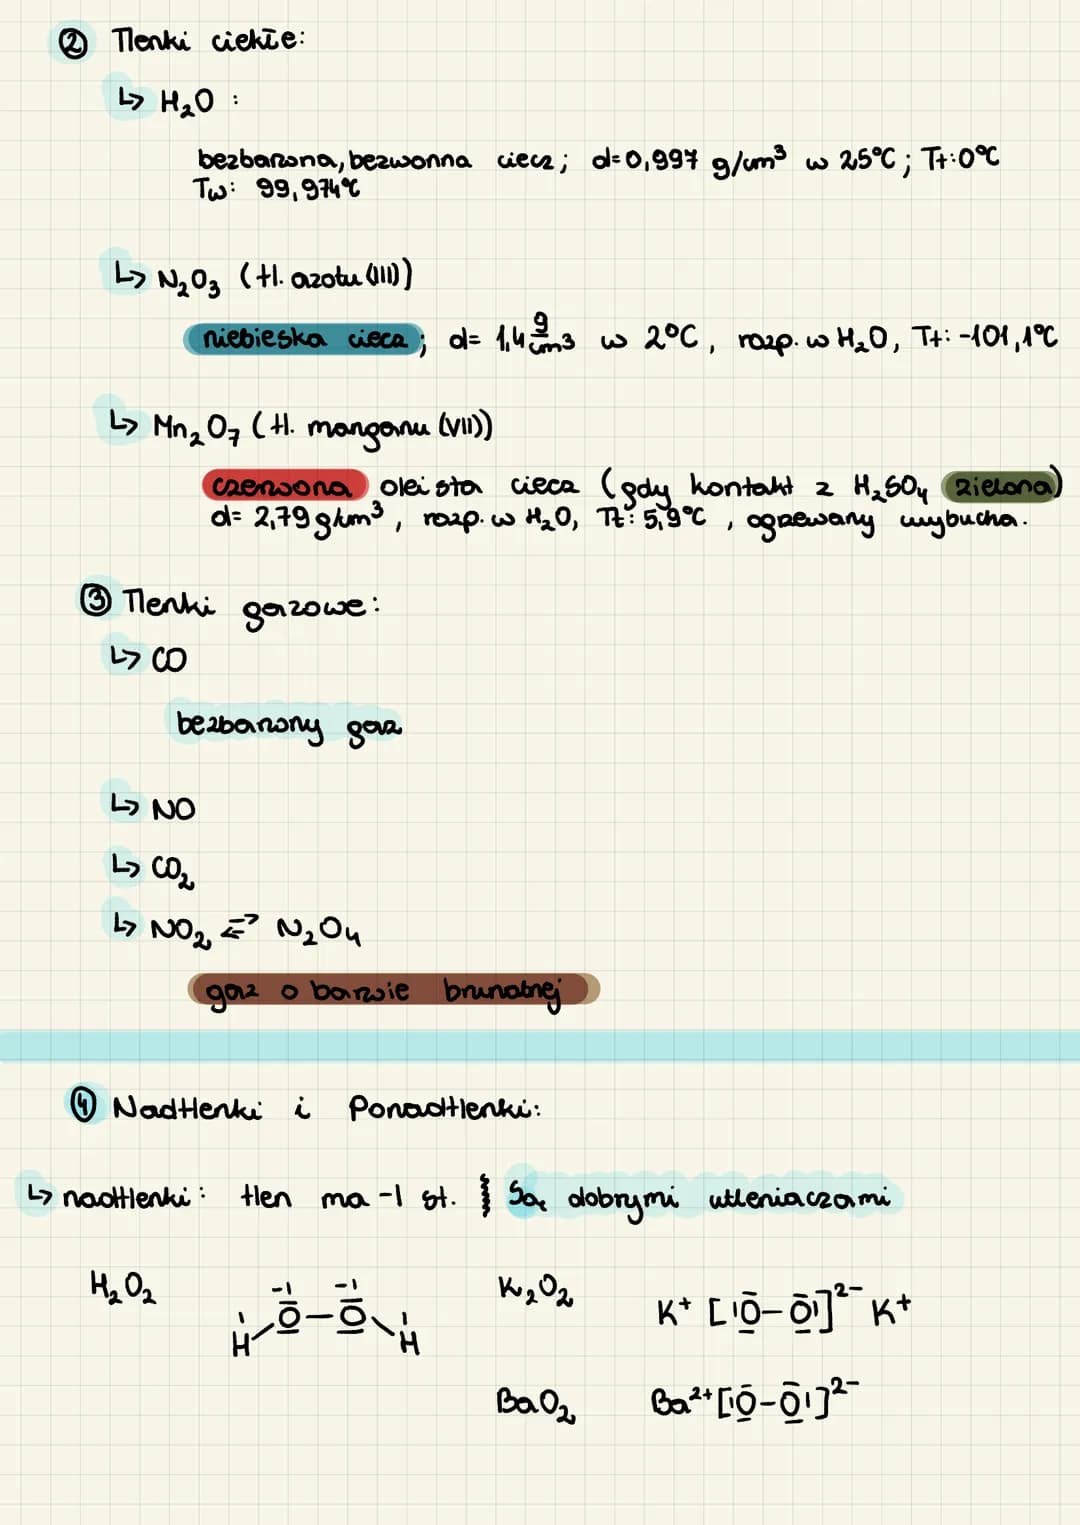 ② Tlenki ciekłe:
↳ H₂O :
bezbarwna, bezwonna ciecz; d=0,997 g/cm³ w 25°C; Tt:0°C
Tw: 99,974°C
↳ N₂O₃ (tl. azotu (III))
niebieska ciecz; d= 1,4 g/cm³ w 2°C, rozp. w H₂O, Tt: -101,1°C
↳ Mn₂O₇ (tl. manganu (VII))
czerwona oleista ciecz (gdy kontakt z H₂SO₄ zielona)
d= 2,79 g/cm³, rozp. w H₂O, Tt: 5,9°C, ogrzewany wybucha.
③ Tlenki gazowe:
↳ CO
bezbarwny gaz
↳ NO
↳ CO₂
↳ NO₂ ⇄ N₂O₄
gaz o barwie brunatnej
④ Nadtlenki i Ponadtlenki:
↳ nadtlenki: tlen ma -I st. Są dobrymi utleniaczami
H₂O₂ H-O-O-H -I -I I I K₂O₂ K⁺ [|O-O|]²⁻ K⁺
BaO₂ Ba²⁺[|O-O|]²⁻